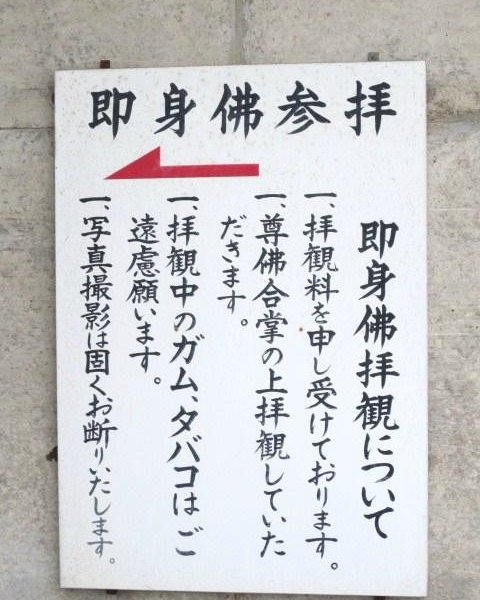 即身佛参拝
即身佛拝観について
一、拝観料を申し受けております。
一、尊佛合掌の上拝観していた
だきます。
一、拝観中のガム、タバコはご
遠慮願います。
一、写真撮影は固くお断りいたします。